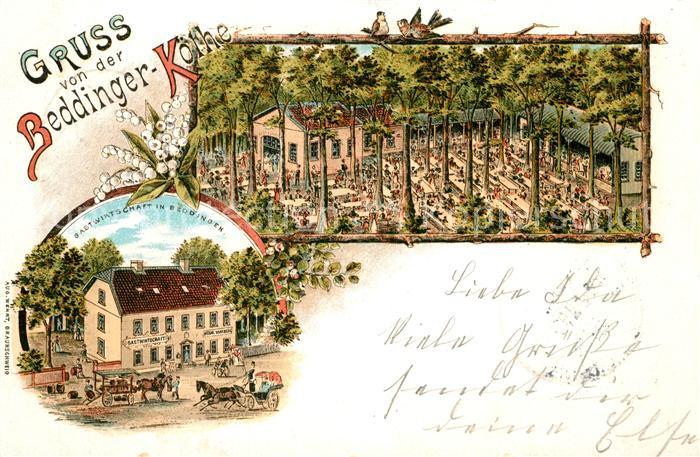 GRUSS
von der
Beddinger-Köthe
GASTWIRTSCHAFT IN BEDDINGEN.
GASTWIRTSCHAFT
AUG. WEHRT, BRAUNSCHWEIG
Liebe Ida
Viele Grüße
sendet dir
deine Else